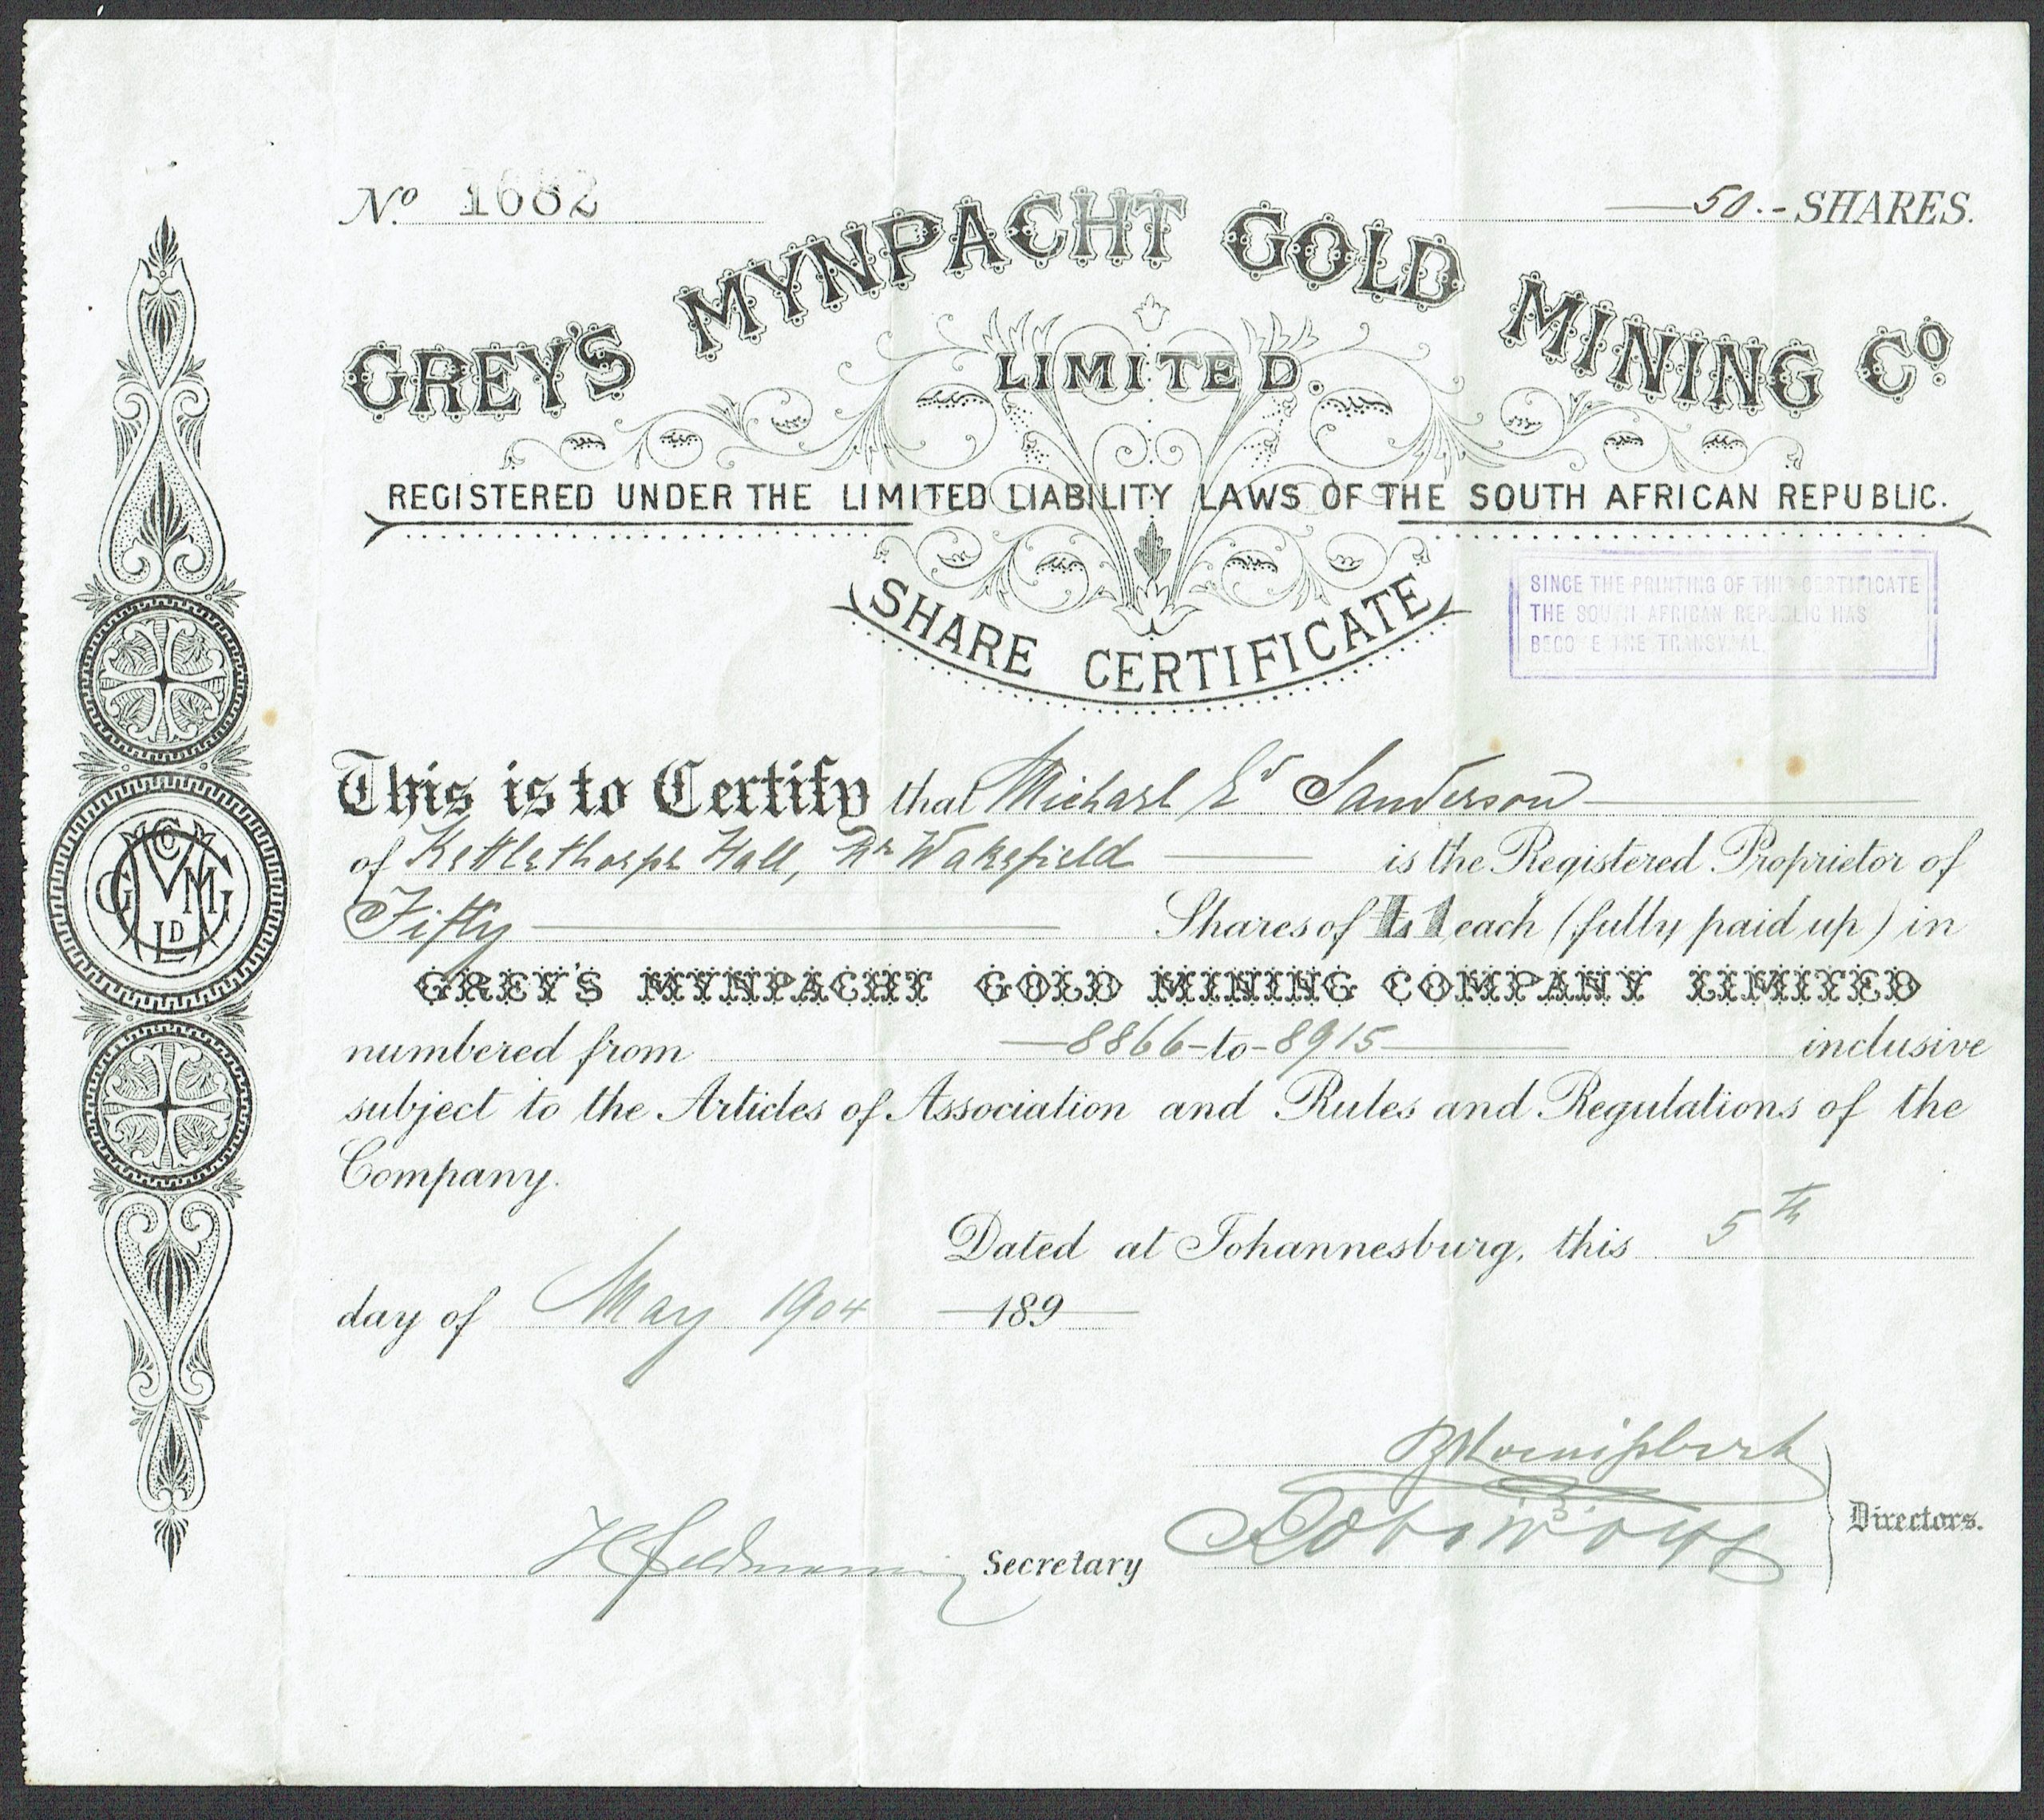 No 1682
50.- SHARES.
GREY'S MYNPACHT GOLD MINING Co.
LIMITED.
REGISTERED UNDER THE LIMITED LIABILITY LAWS OF THE SOUTH AFRICAN REPUBLIC.
SHARE CERTIFICATE
SINCE THE PRINTING OF THIS CERTIFICATE
THE SOUTH AFRICAN REPUBLIC HAS
BECOME THE TRANSVAAL.
This is to Certify that Michael Ed Sanderson
of Kettlethorpe Hall, Nr Wakefield is the Registered Proprietor of
Fifty Shares of £1 each (fully paid up) in
GREY'S MYNPACHT GOLD MINING COMPANY LIMITED
numbered from 8866 - to - 8915 inclusive
subject to the Articles of Association and Rules and Regulations of the
Company.
Dated at Johannesburg, this 5th
day of May 1904 189
Secretary
Directors.
G M G M Co LD